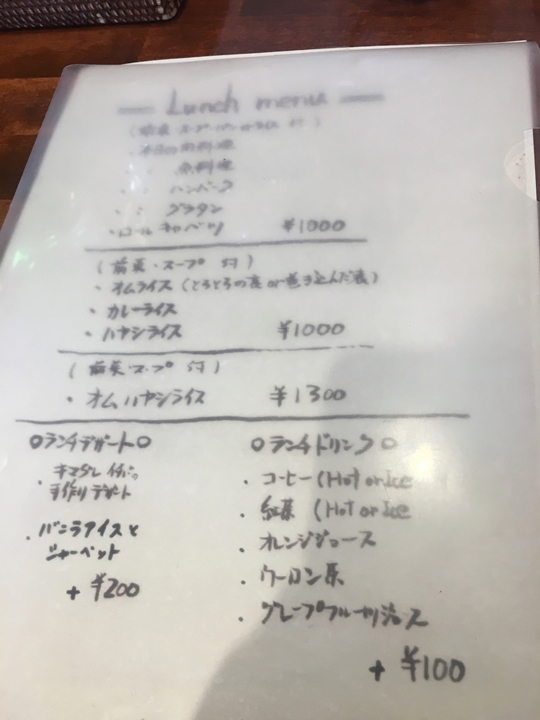 Lunch menu
(前菜・スープ・パンorライス 付)
・本日の肉料理
・〃 魚料理
・〃 ハンバーグ
・〃 グラタン
・ロールキャベツ ¥1000
(前菜・スープ 付)
・オムライス(とろとろの卵or巻き込んだ卵)
・カレーライス
・ハヤシライス ¥1000
(前菜・スープ 付)
・オムハヤシライス ¥1300
○ランチデザート○
・キマグレ
手作りデザート
・バニラアイスと
シャーベット
+¥200
○ランチドリンク○
・コーヒー(Hot or Ice
・紅茶 (Hot or Ice
・オレンジジュース
・ウーロン茶
・グレープフルーツジュース
+¥100